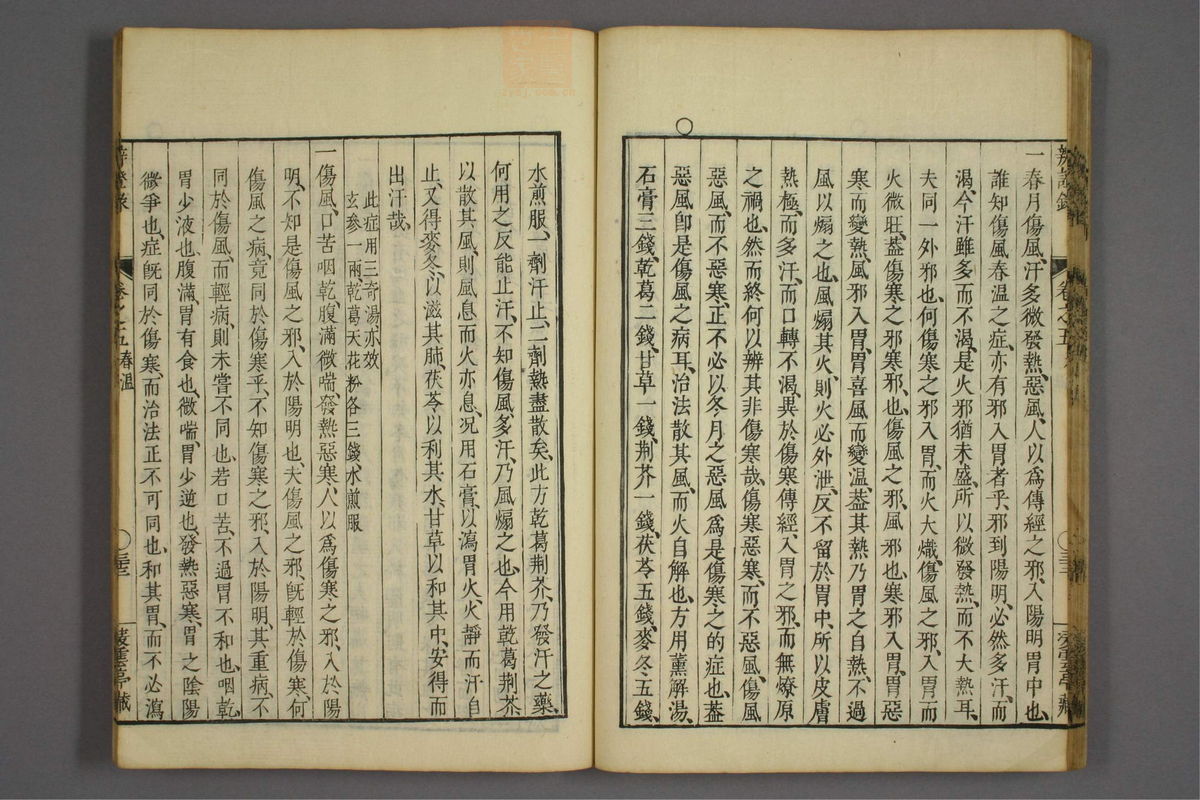 辨證錄
卷之五
一春月傷風、汗多微發熱、惡風、人以爲傳經之邪、入陽明胃中也、
誰知傷風春温之症、亦有邪入胃者乎、邪到陽明、必然多汗、而
渴、今汗雖多而不渴、是火邪猶未盛、所以微發熱、而不大熱耳、
夫同一外邪也、何傷寒之邪入胃、而火大熾、傷風之邪、入胃而
火微旺、葢傷寒之邪寒邪也、傷風之邪、風邪也、寒邪入胃、胃惡
寒而變熱、風邪入胃、胃喜風而變温、葢其熱乃胃之自熱、不過
風以煽之也、風煽其火、則火必外泄、反不留於胃中、所以皮膚
熱極、而多汗、而口轉不渴、異於傷寒傳經、入胃之邪、而無燎原
之禍也、然而終何以辨其非傷寒哉、傷寒惡寒、而不惡風、傷風
惡風、而不惡寒、正不必以冬月之惡風、爲是傷寒之的症也、葢
惡風卽是傷風之病耳、治法散其風、而火自解也、方用薰解湯、
石膏三錢、乾葛二錢、甘草一錢、荆芥一錢、茯苓五錢、麥冬五錢、
水煎服、一劑汗止、二劑熱盡散矣、此方乾葛荆芥、乃發汗之藥、
何用之反能止汗、不知傷風、多汗、乃風煽之也、今用乾葛荆芥
以散其風、則風息而火亦息、况用石膏、以瀉胃火、火靜而汗自
止、又得麥冬、以滋其肺、茯苓以利其水、甘草以和其中、安得而
出汗哉、
此症用三奇湯亦效
玄參一兩乾葛天花粉各三錢水煎服
一傷風、口苦咽乾、腹滿微喘、發熱惡寒、人以爲傷寒之邪、入於陽
明、不知是傷風之邪、入於陽明也、夫傷風之邪、旣輕於傷寒、何
傷風之病、竟同於傷寒乎、不知傷寒之邪、入於陽明、其重病、不
同於傷風、而輕病、則未嘗不同也、若口苦、不過胃不和也、咽乾、
胃少液也、腹滿、胃有食也、微喘、胃少逆也、發熱惡寒、胃之陰陽
微爭也、症旣同於傷寒、而治法正不可同也、和其胃、而不必瀉
辨證錄
卷之五春温